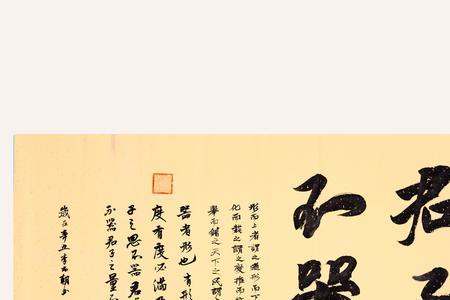 君子
不器
形而上者謂之道形而下
化而裁之謂之變推而
舉而錯之天下之民謂
器者形也有形
度有度必滿
子之思不器君
不器君子之量不
歲在辛丑